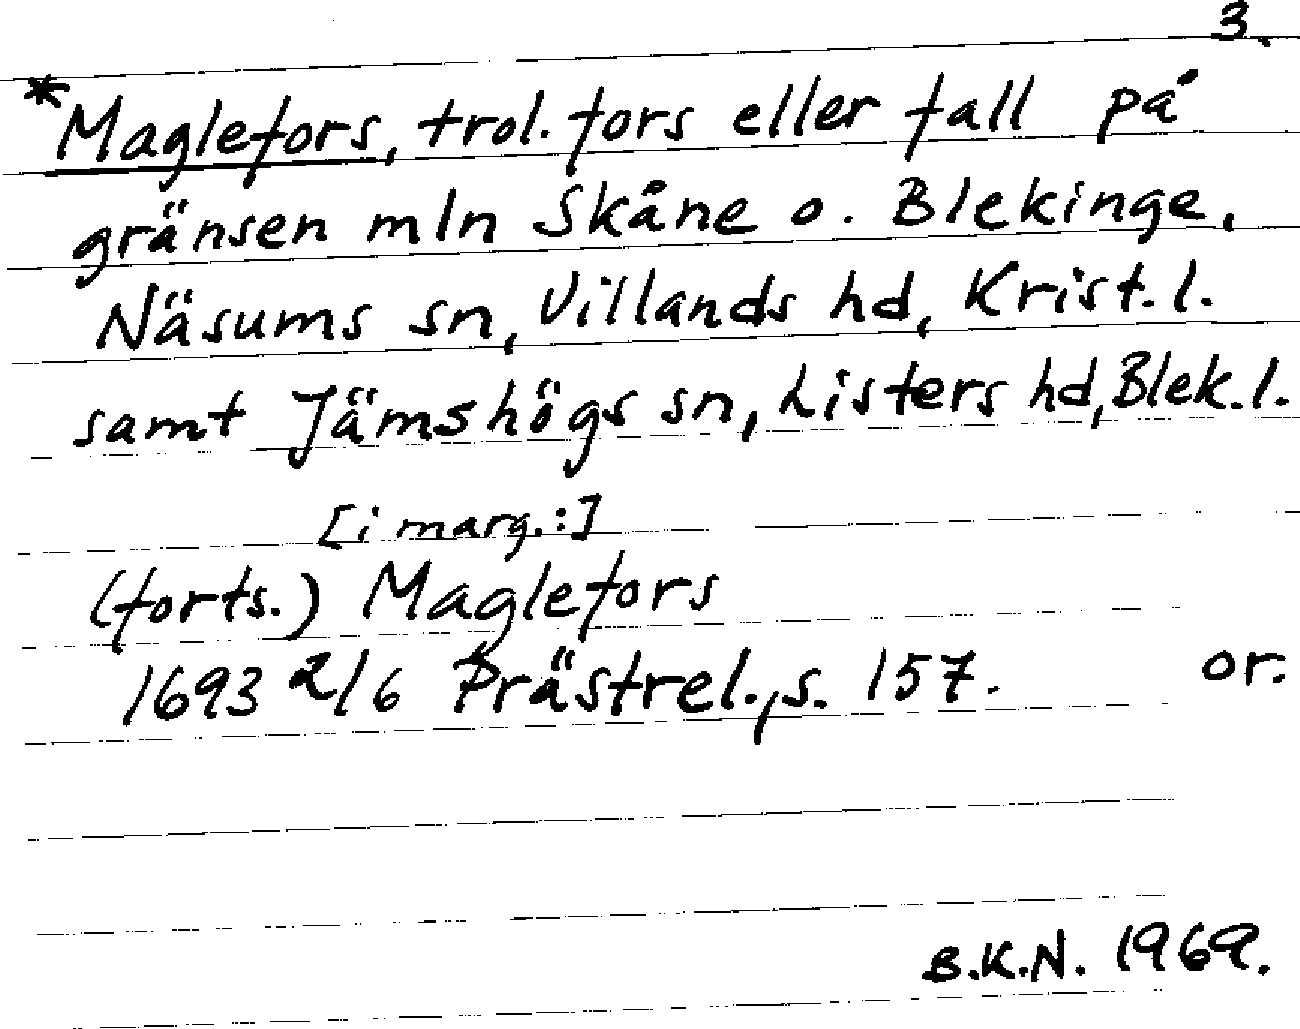 3.
*Maglefors, trol. fors eller fall på
gränsen mln Skåne o. Blekinge,
Näsums sn, Villands hd, Krist. l.
samt Jämshögs sn, Listers hd, Blek. l.
[i marg.:]
(forts.) Maglefors
1693 2/6 Prästrel., s. 157. or.
B.K.N. 1969.